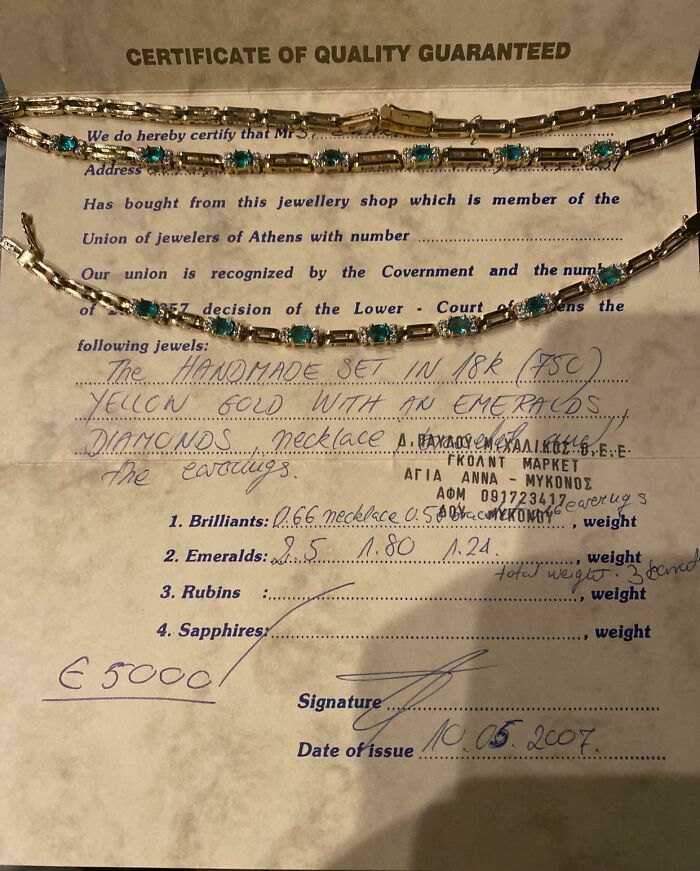 CERTIFICATE OF QUALITY GUARANTEED
We do hereby certify that Mr
Address
Has bought from this jewellery shop which is member of the
Union of jewelers of Athens with number
Our union is recognized by the Covernment and the
of decision of the Lower - Court of the
following jewels:
The HANDMADE SET IN 18K (750)
YELLOW GOLD WITH AN EMERALDS,
DIAMONDS, necklace,
the earrings.
Δ.ΠΑΥΛΟΥ ΜΙΧΑΛΙΚΟΣ Ο.Ε.Ε
ΓΚΟΛΝΤ ΜΑΡΚΕΤ
ΑΓΙΑ ΑΝΝΑ - ΜΥΚΟΝΟΣ
ΑΦΜ 091723417
ΔΟΥ ΜΥΚΟΝΟΥ
1. Brilliants: 0.66 necklace earrings, weight
2. Emeralds: 2.5 1.80 1.24 , weight
total weight
3. Rubins : , weight
4. Sapphires: , weight
€ 5000
Signature
Date of issue 10.05.2007.